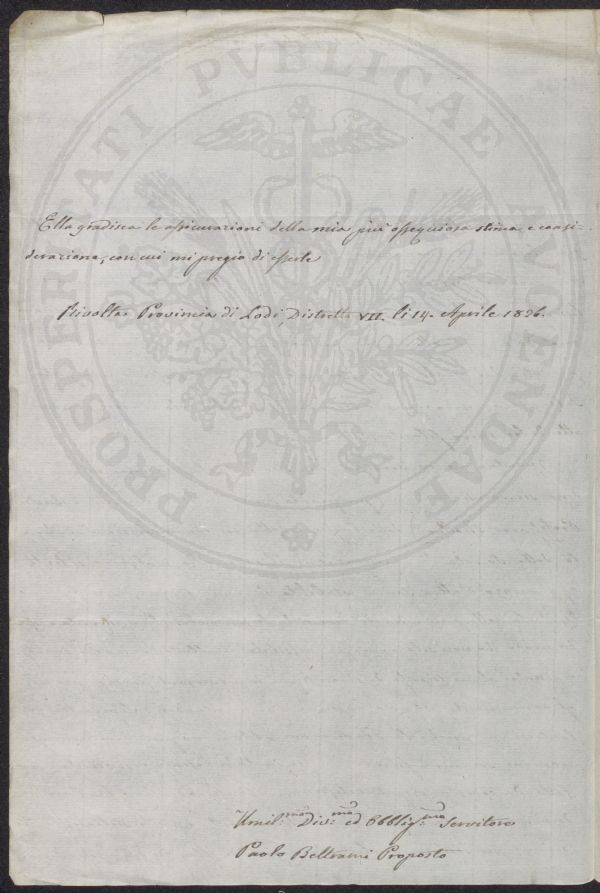 PROSPERITATI PVBLICAE AVGENDAE
Ella gradisca le assicurazioni della mia più ossequiosa stima e consi-
derazione, con cui mi pregio di esserle
Rivolta Provincia di Lodi, Distretto VII. li 14. Aprile 1836.
Umil.mo Div.mo ed Obblig.mo Servitore
Paolo Beltrami Proposto